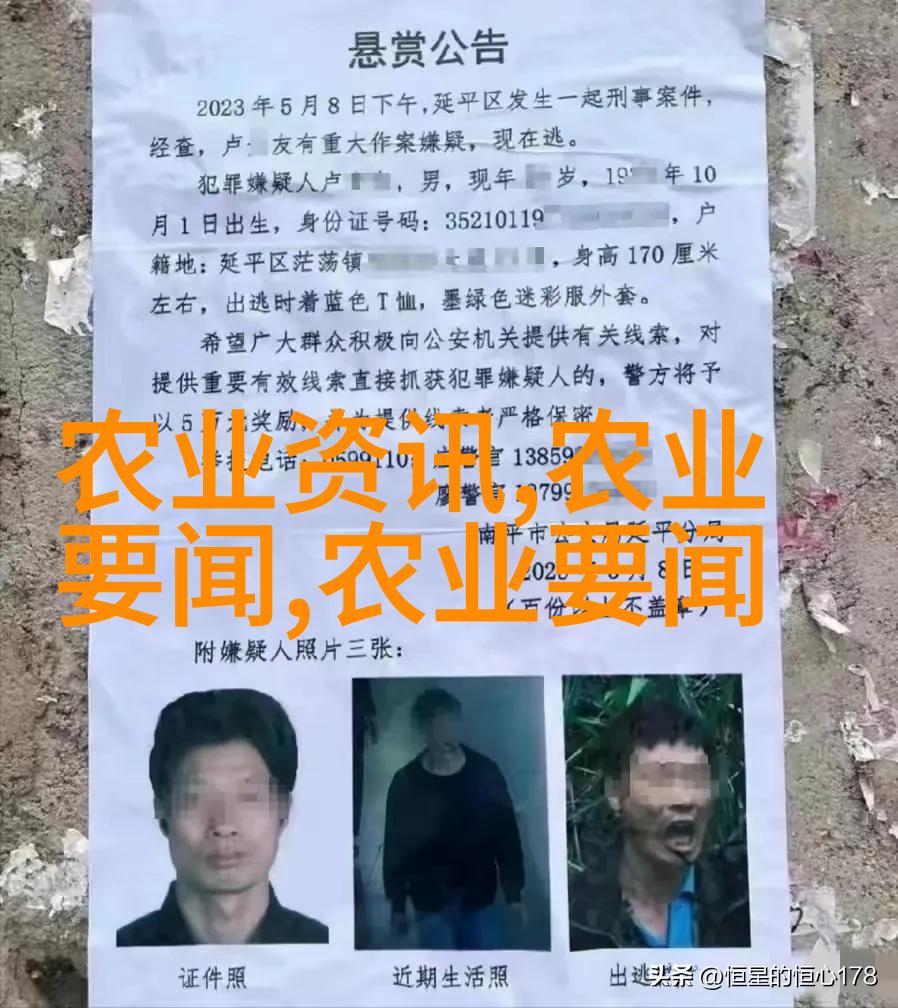 悬赏公告
2023年5月8日下午,延平区发生一起刑事案件,
经查,卢 友有重大作案嫌疑,现在逃。
犯罪嫌疑人卢 ,男,现年 岁,19 年10
月1日出生,身份证号码:35210119 ,户
籍地:延平区茫荡镇 ,身高170厘米
左右,出逃时着蓝色T恤,墨绿色迷彩服外套。
希望广大群众积极向公安机关提供有关线索,对
提供重要有效线索直接抓获犯罪嫌疑人的,警方将予
以5万元奖励, 提供线索者严格保密
农业资讯,农业
要闻,农业要闻
举报电话: 警官 13859
廖警官
南平市公安局延平分局
附嫌疑人照片三张:
证件照
近期生活照
出逃
头条 @恒星的恒心178